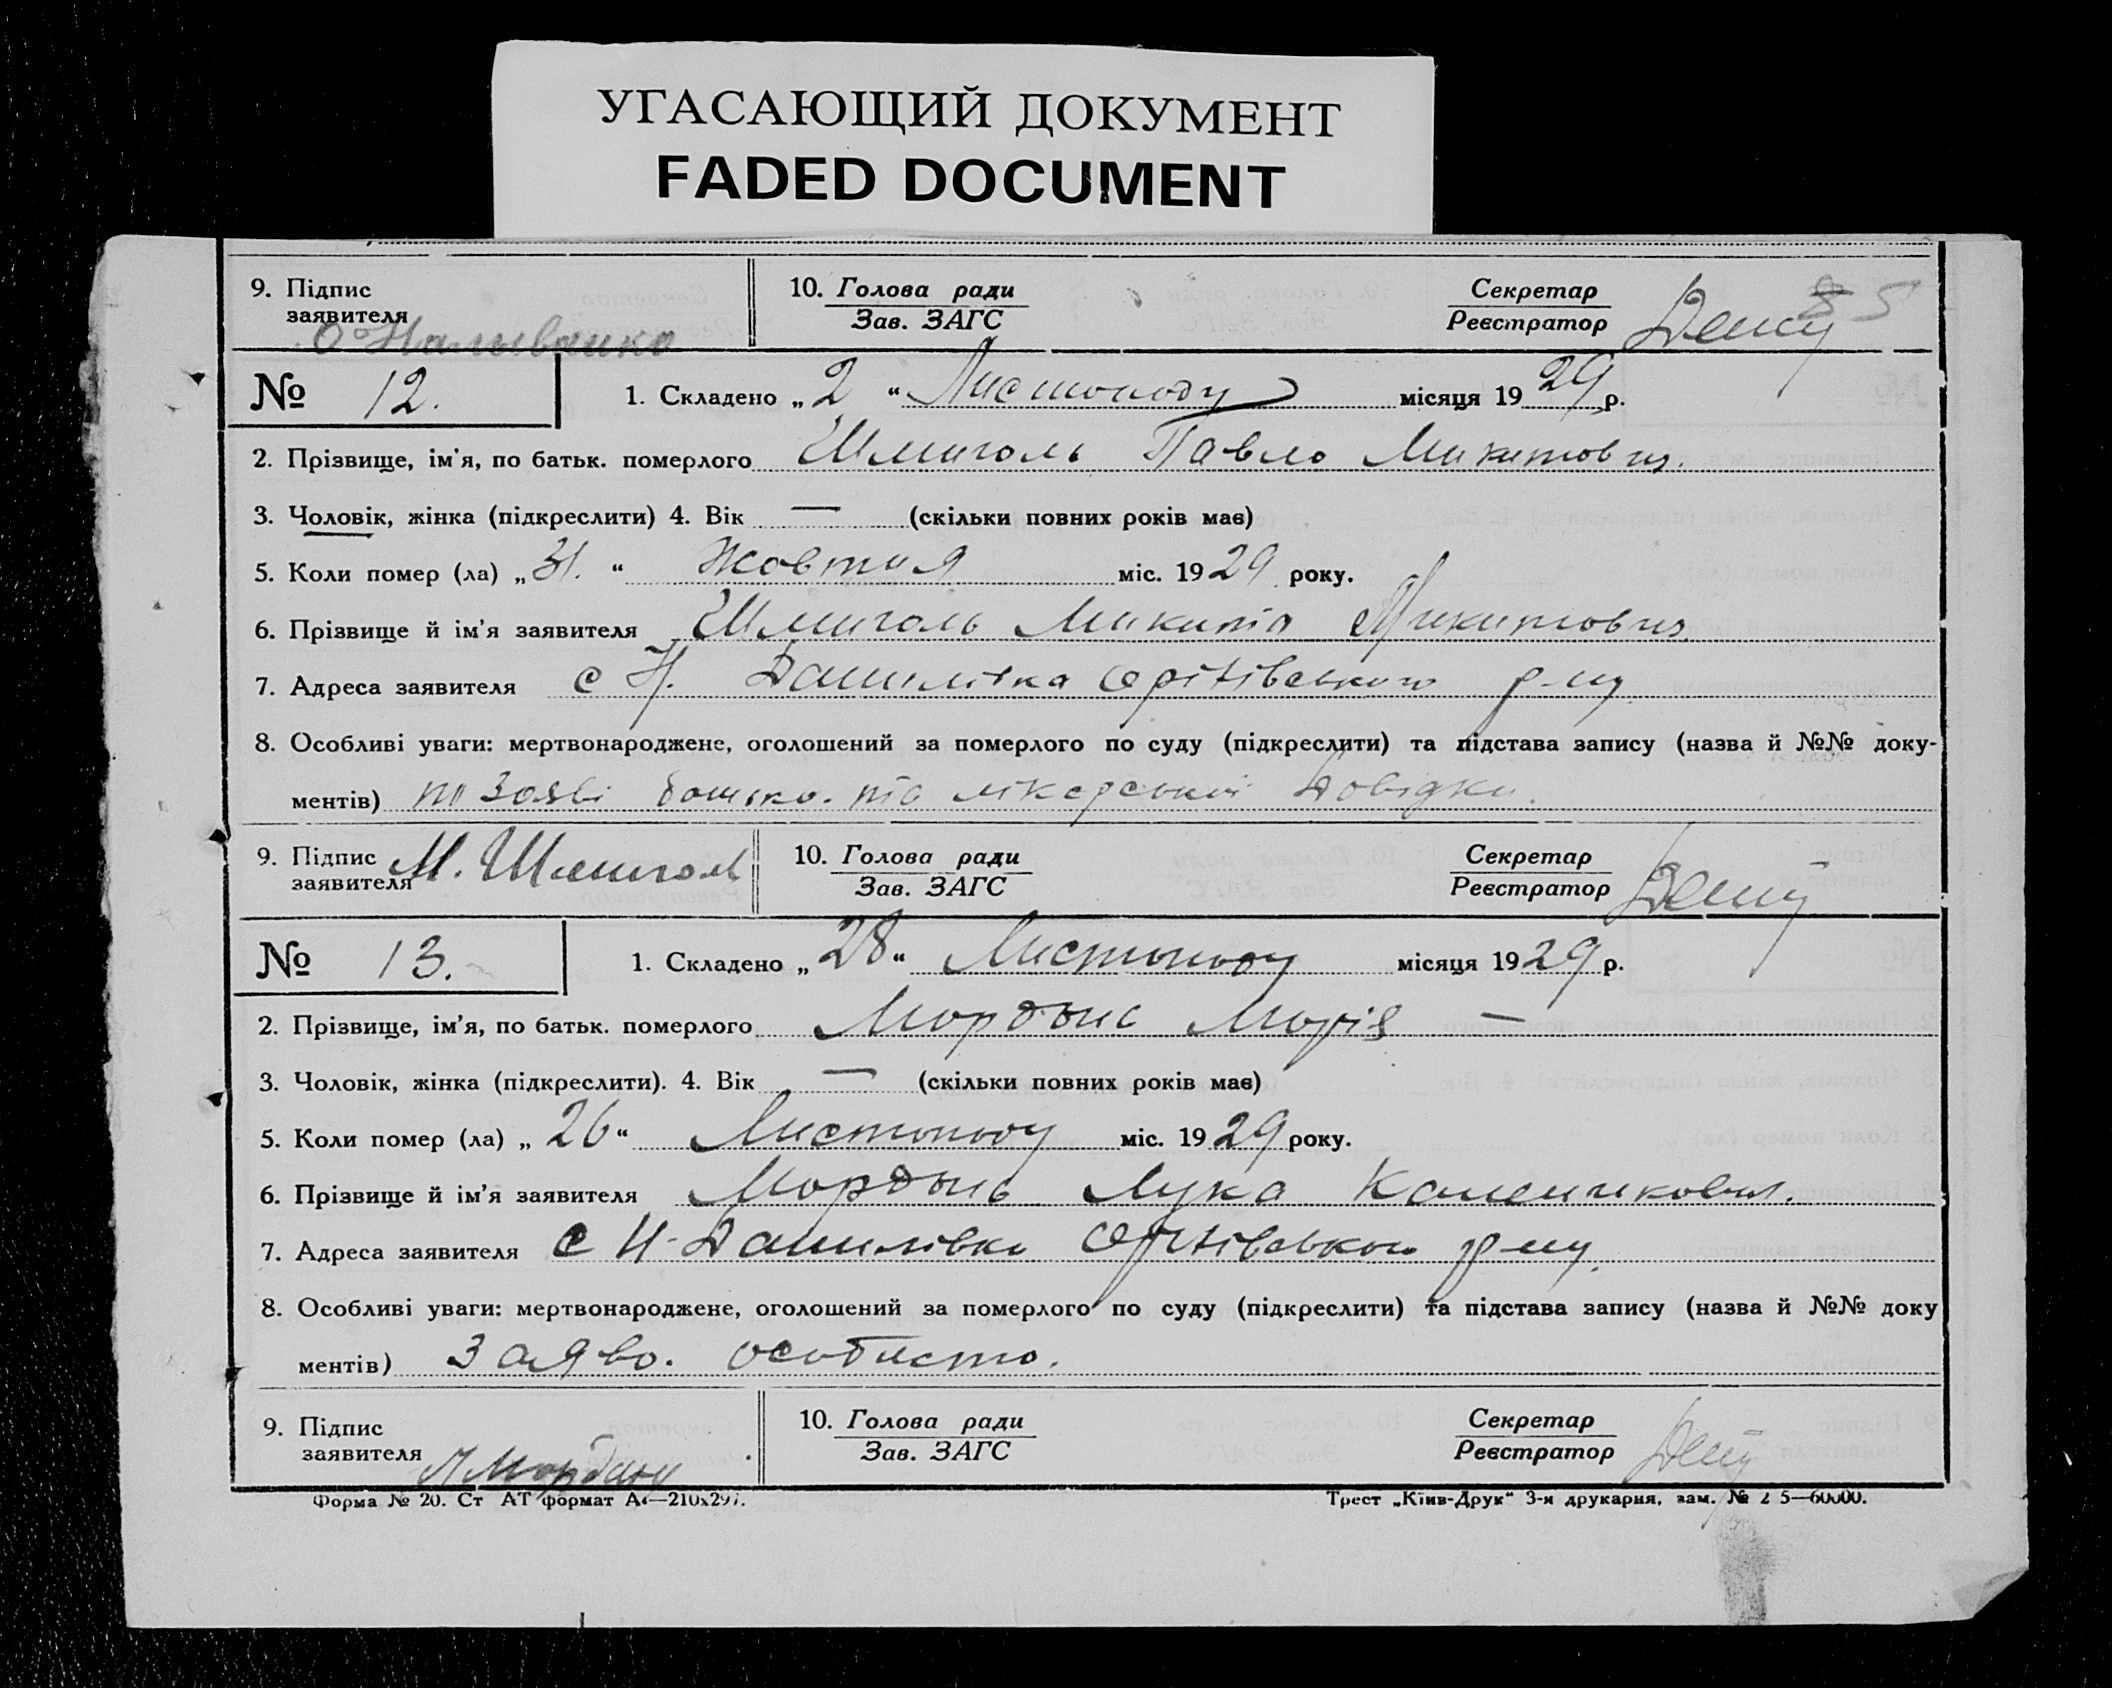 УГАСАЮЩИЙ ДОКУМЕНТ
FADED DOCUMENT
55
9. Підпис заявителя О Наливайко 10. Голова ради Зав. ЗАГС Секретар Реєстратор
№ 12. 1. Складено „ 2 “ Листопаду місяця 1929 р.
2. Прізвище, ім'я, по батьк. померлого Шмиголь Павло Микитович.
3. Чоловік, жінка (підкреслити) 4. Вік — (скільки повних років має)
5. Коли помер (ла) „ 31. “ Жовтня міс. 1929 року.
6. Прізвище й ім'я заявителя Шмиголь Микита Микитович
7. Адреса заявителя с Н. Данилівка р-ну
8. Особливі уваги: мертвонароджене, оголошений за померлого по суду (підкреслити) та підстава запису (назва й №№ доку-
ментів) по заяві батька. та лікарської довідки.
9. Підпис заявителя М. Шмиголь 10. Голова ради Зав. ЗАГС Секретар Реєстратор
№ 13. 1. Складено „ 28 “ Листопаду місяця 1929 р.
2. Прізвище, ім'я, по батьк. померлого Марія —
3. Чоловік, жінка (підкреслити). 4. Вік — (скільки повних років має)
5. Коли помер (ла) „ 26 “ Листопаду міс. 1929 року.
6. Прізвище й ім'я заявителя Лука
7. Адреса заявителя с Н-Данилівка р-ну.
8. Особливі уваги: мертвонароджене, оголошений за померлого по суду (підкреслити) та підстава запису (назва й №№ доку
ментів) заява. особисто.
9. Підпис заявителя 10. Голова ради Зав. ЗАГС Секретар Реєстратор
Форма № 20. Ст АТ формат А4—210х297. Трест „Київ-Друк“ 3-я друкарня, зам. № 5—60000.